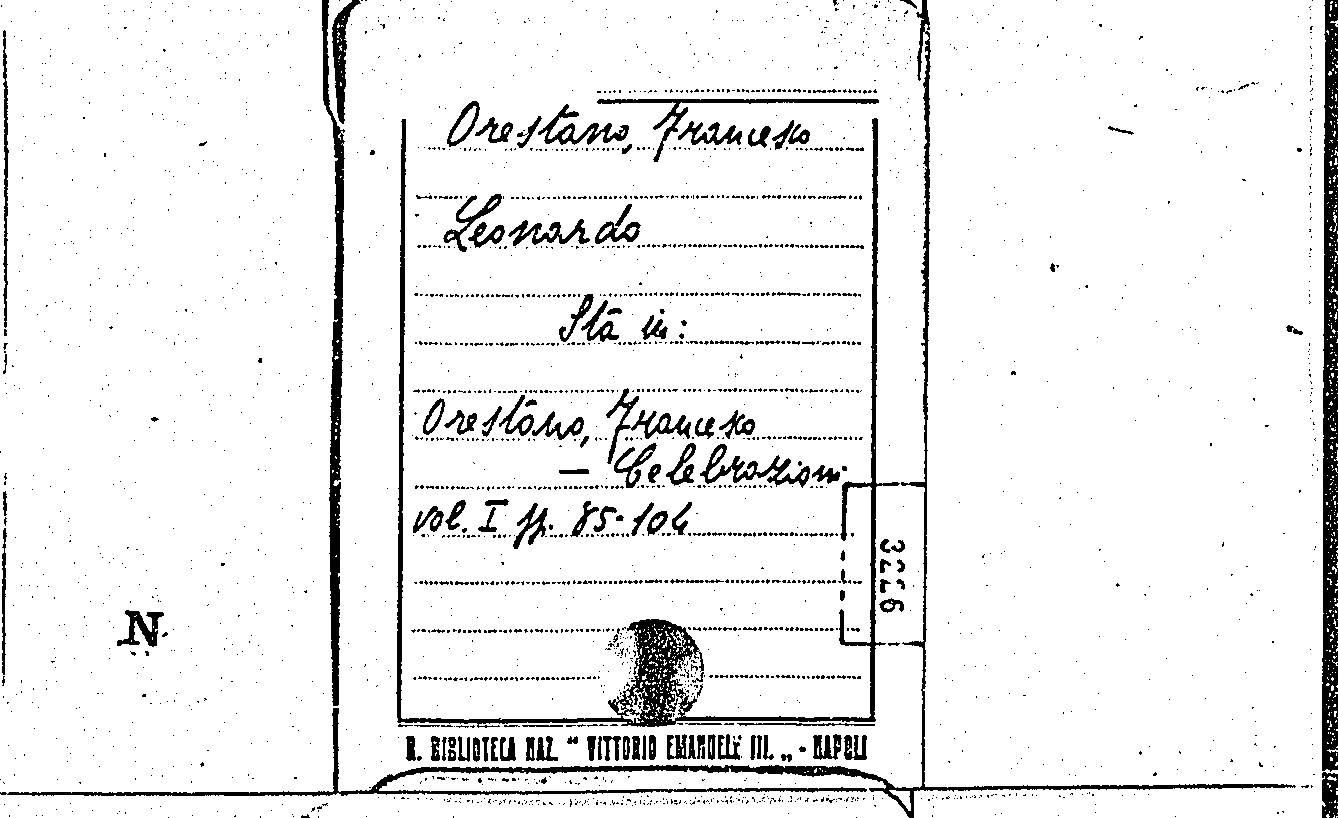 Orestano, Francesco
Leonardo
Sta in:
Orestano, Francesco
— Celebrazioni
vol. I pp. 85-104
3226
N
R. BIBLIOTECA NAZ. “ VITTORIO EMANUELE III. „ - NAPOLI